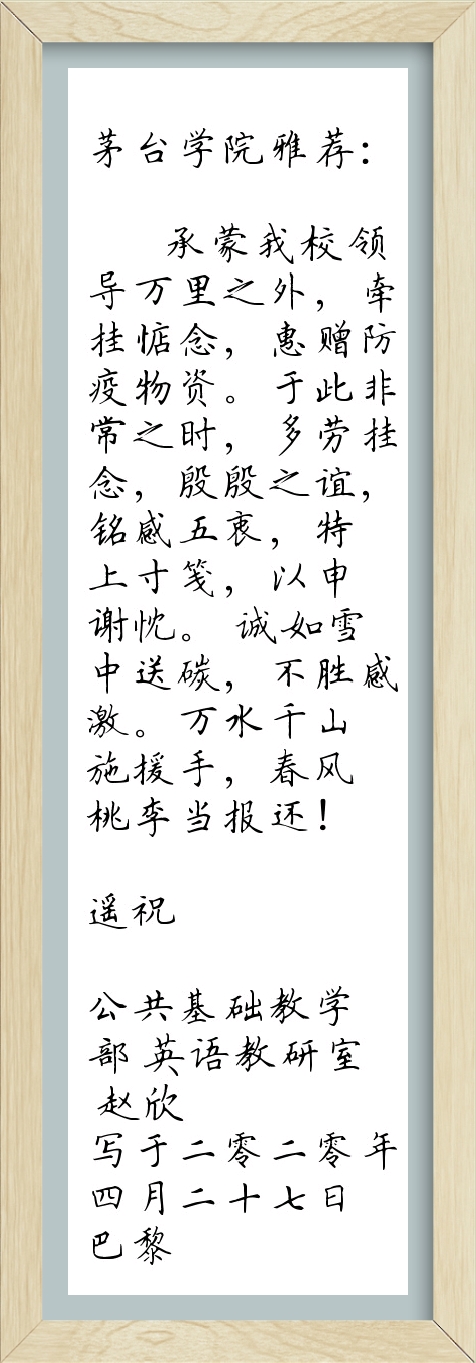 茅台学院雅荐：
承蒙我校领
导万里之外，牵
挂惦念，惠赠防
疫物资。于此非
常之时，多劳挂
念，殷殷之谊，
铭感五衷，特
上寸笺，以申
谢忱。诚如雪
中送碳，不胜感
激。万水千山
施援手，春风
桃李当报还！
遥祝
公共基础教学
部 英语教研室
赵欣
写于二零二零年
四月二十七日
巴黎